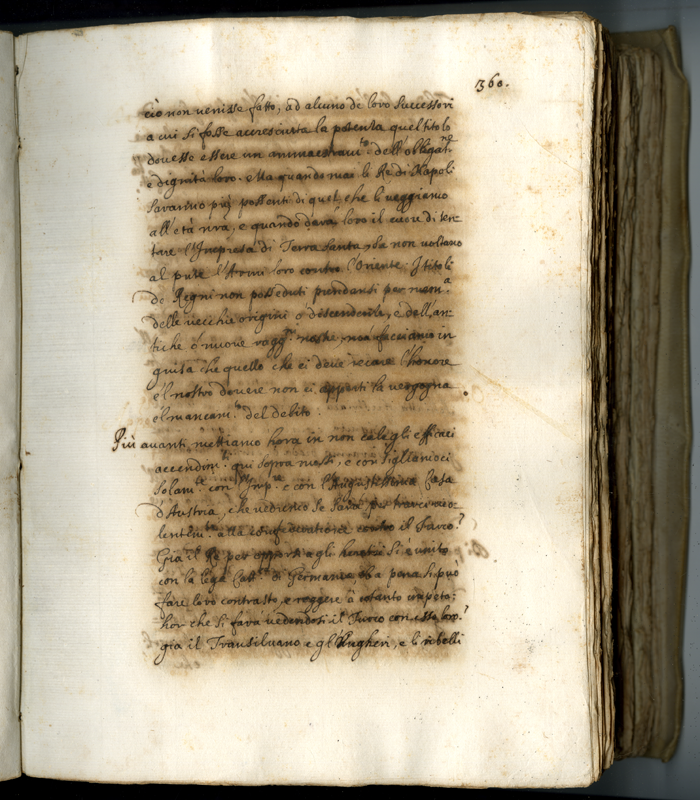 360.
ciò non venisse fatto, ad alcuno de loro successori
a cui si fosse accresciuta la potenza quel titolo
dovesse essere un ammaestram.to dell'obligat.ne
e dignità loro. Ma quando mai li Re di Napoli
Saranno più possenti di quel, che li veggiamo
all'età nra, e quando darà loro il cuore di ten=
tare l'Impresa di Terra Santa, se non voltano
al pure l'Armi loro contro l'Oriente. I titoli
de Regni non posseduti prendansi per mem.a
delle vecchie origini o descendenze, e dell'an=
tiche ò nuove ragg.i nostre, mà facciamo in
guisa che quello che ci deve recare l'honore
e'l nostro dovere non ci apporti la vergogna
e'l mancam.to del debito.
Più avanti mettiamo hora in non cale gli efficaci
accendim.ti qui sopra mossi, e consigliamoci
solam.te con l'Imp.re e con l'Augustissima Casa
d'Austria, che vedremo se sarà per trarre
lentem.te alla confederatione contro il Turco?
Già il Re per opporsi agli heretici si è unito
con la lega Catt.ca di Germania, et a pena si può
fare loro contrasto, e reggere à cotanto impeto;
hor che si farà vedendosi il Turco con essi loro?
già il Transilvano e gl'Ungheri, e li ribelli